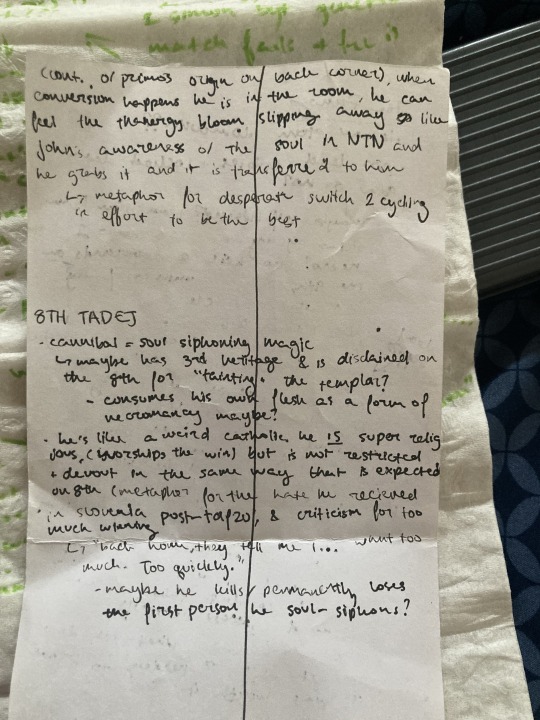 match fails + he is
(cont. of primos origin on back corner), when
conversion happens he is in the room, he can
feel the thanergy bloom slipping away so like
John's awareness of the soul in NTN and
he grabs it and it is transferred to him
↳ metaphor for desperate switch 2 cycling
in effort to be the best
8TH TADEJ
- cannibal = soul siphoning magic
↳ maybe has 3rd heritage & is disdained on
the 8th for "tainting" the templar?
- consumes his own flesh as a form of
necromancy maybe?
- he's like a weird catholic, he IS super relig
ious, (worships the win) but is not restricted
+ devout in the same way that is expected
on 8th (metaphor for the hate he recieved
in slovenia post-tdf20, & criticism for too
much winning
↳ "back home, they tell me I... want too
much. Too quickly."
- maybe he kills/permanently loses
the first person he soul-siphons?